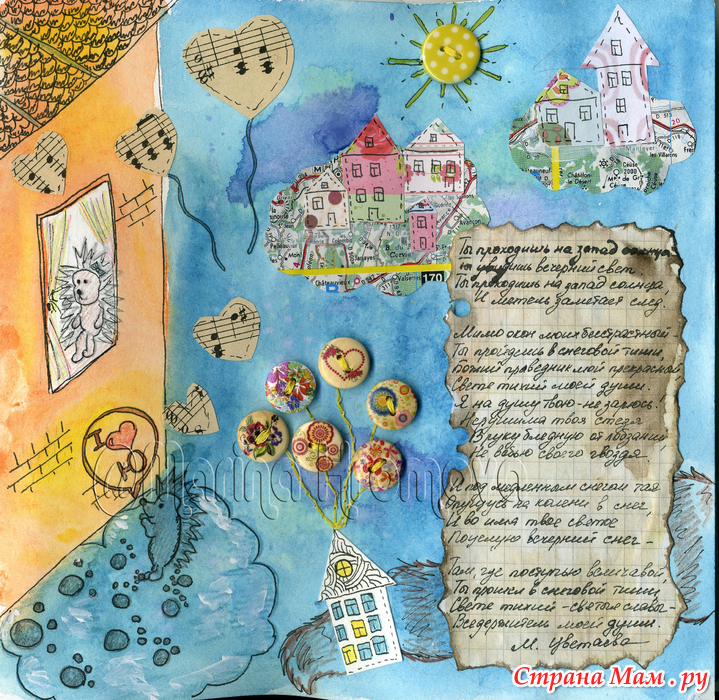 20
Céüse
2000
170
Ты проходишь на запад солнца
ты увидишь вечерний свет.
Ты проходишь на запад солнца,
И метель заметает след.
Мимо окон моих бесстрастный
Ты пройдешь в снеговой тиши,
Божий праведник мой прекрасный
Свете тихий моей души.
Я на душу твою - не зарюсь.
Нерушима твоя стезя
В руку бледную от лобзаний
Не вобью своего гвоздя
И под медленным снегом тая
Опущусь на колени в снег,
И во имя твое святое
Поцелую вечерний снег -
Там где поступью величавой
Ты прошел в снеговой тиши,
Свете тихий - святыя славы
Вседержитель моей души.
М. Цветаева
Страна Мам.ру